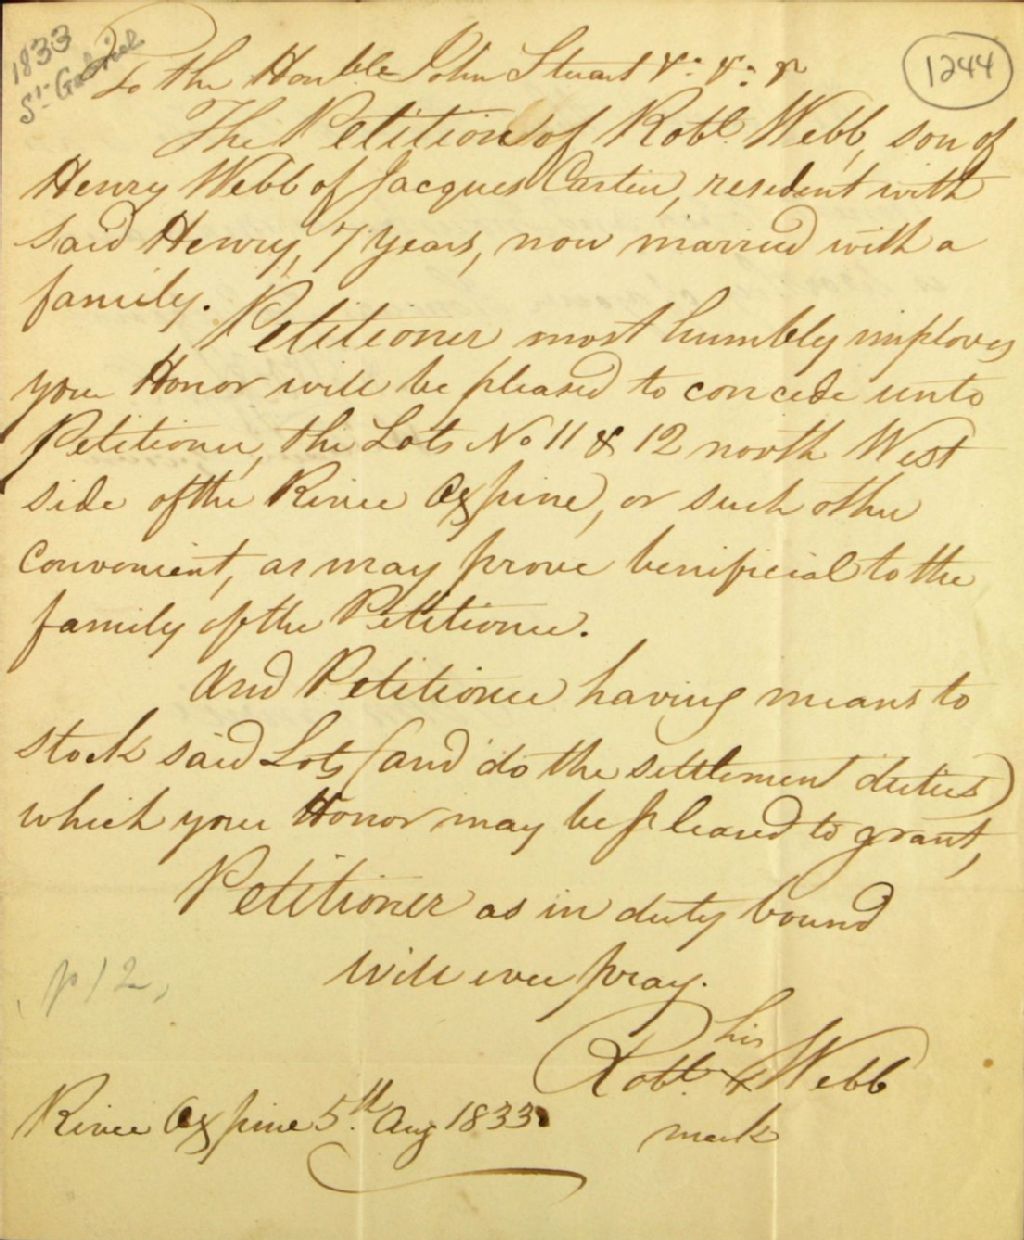 1833
St Gabriel
1244
To the Honble John Stuart &c &c &c
The Petition of Robt. Webb, son of
Henry Webb of Jacques Cartier, resident with
said Henry, 7 years, now married with a
family.
Petitioner most humbly implores
your Honor will be pleased to concede unto
Petitioner, the Lots No 11 & 12 north West
side of the River Ox pine, or such other
convenient, as may prove benificial to the
family of the Petitioner.
And Petitioner having means to
stock said Lots (and do the settlement duties)
which your Honor may be pleased to grant,
Petitioner as in duty bound
will ever pray.
his
Robt. X Webb
mark
River Ox pine 5th. Aug 1833
p12,